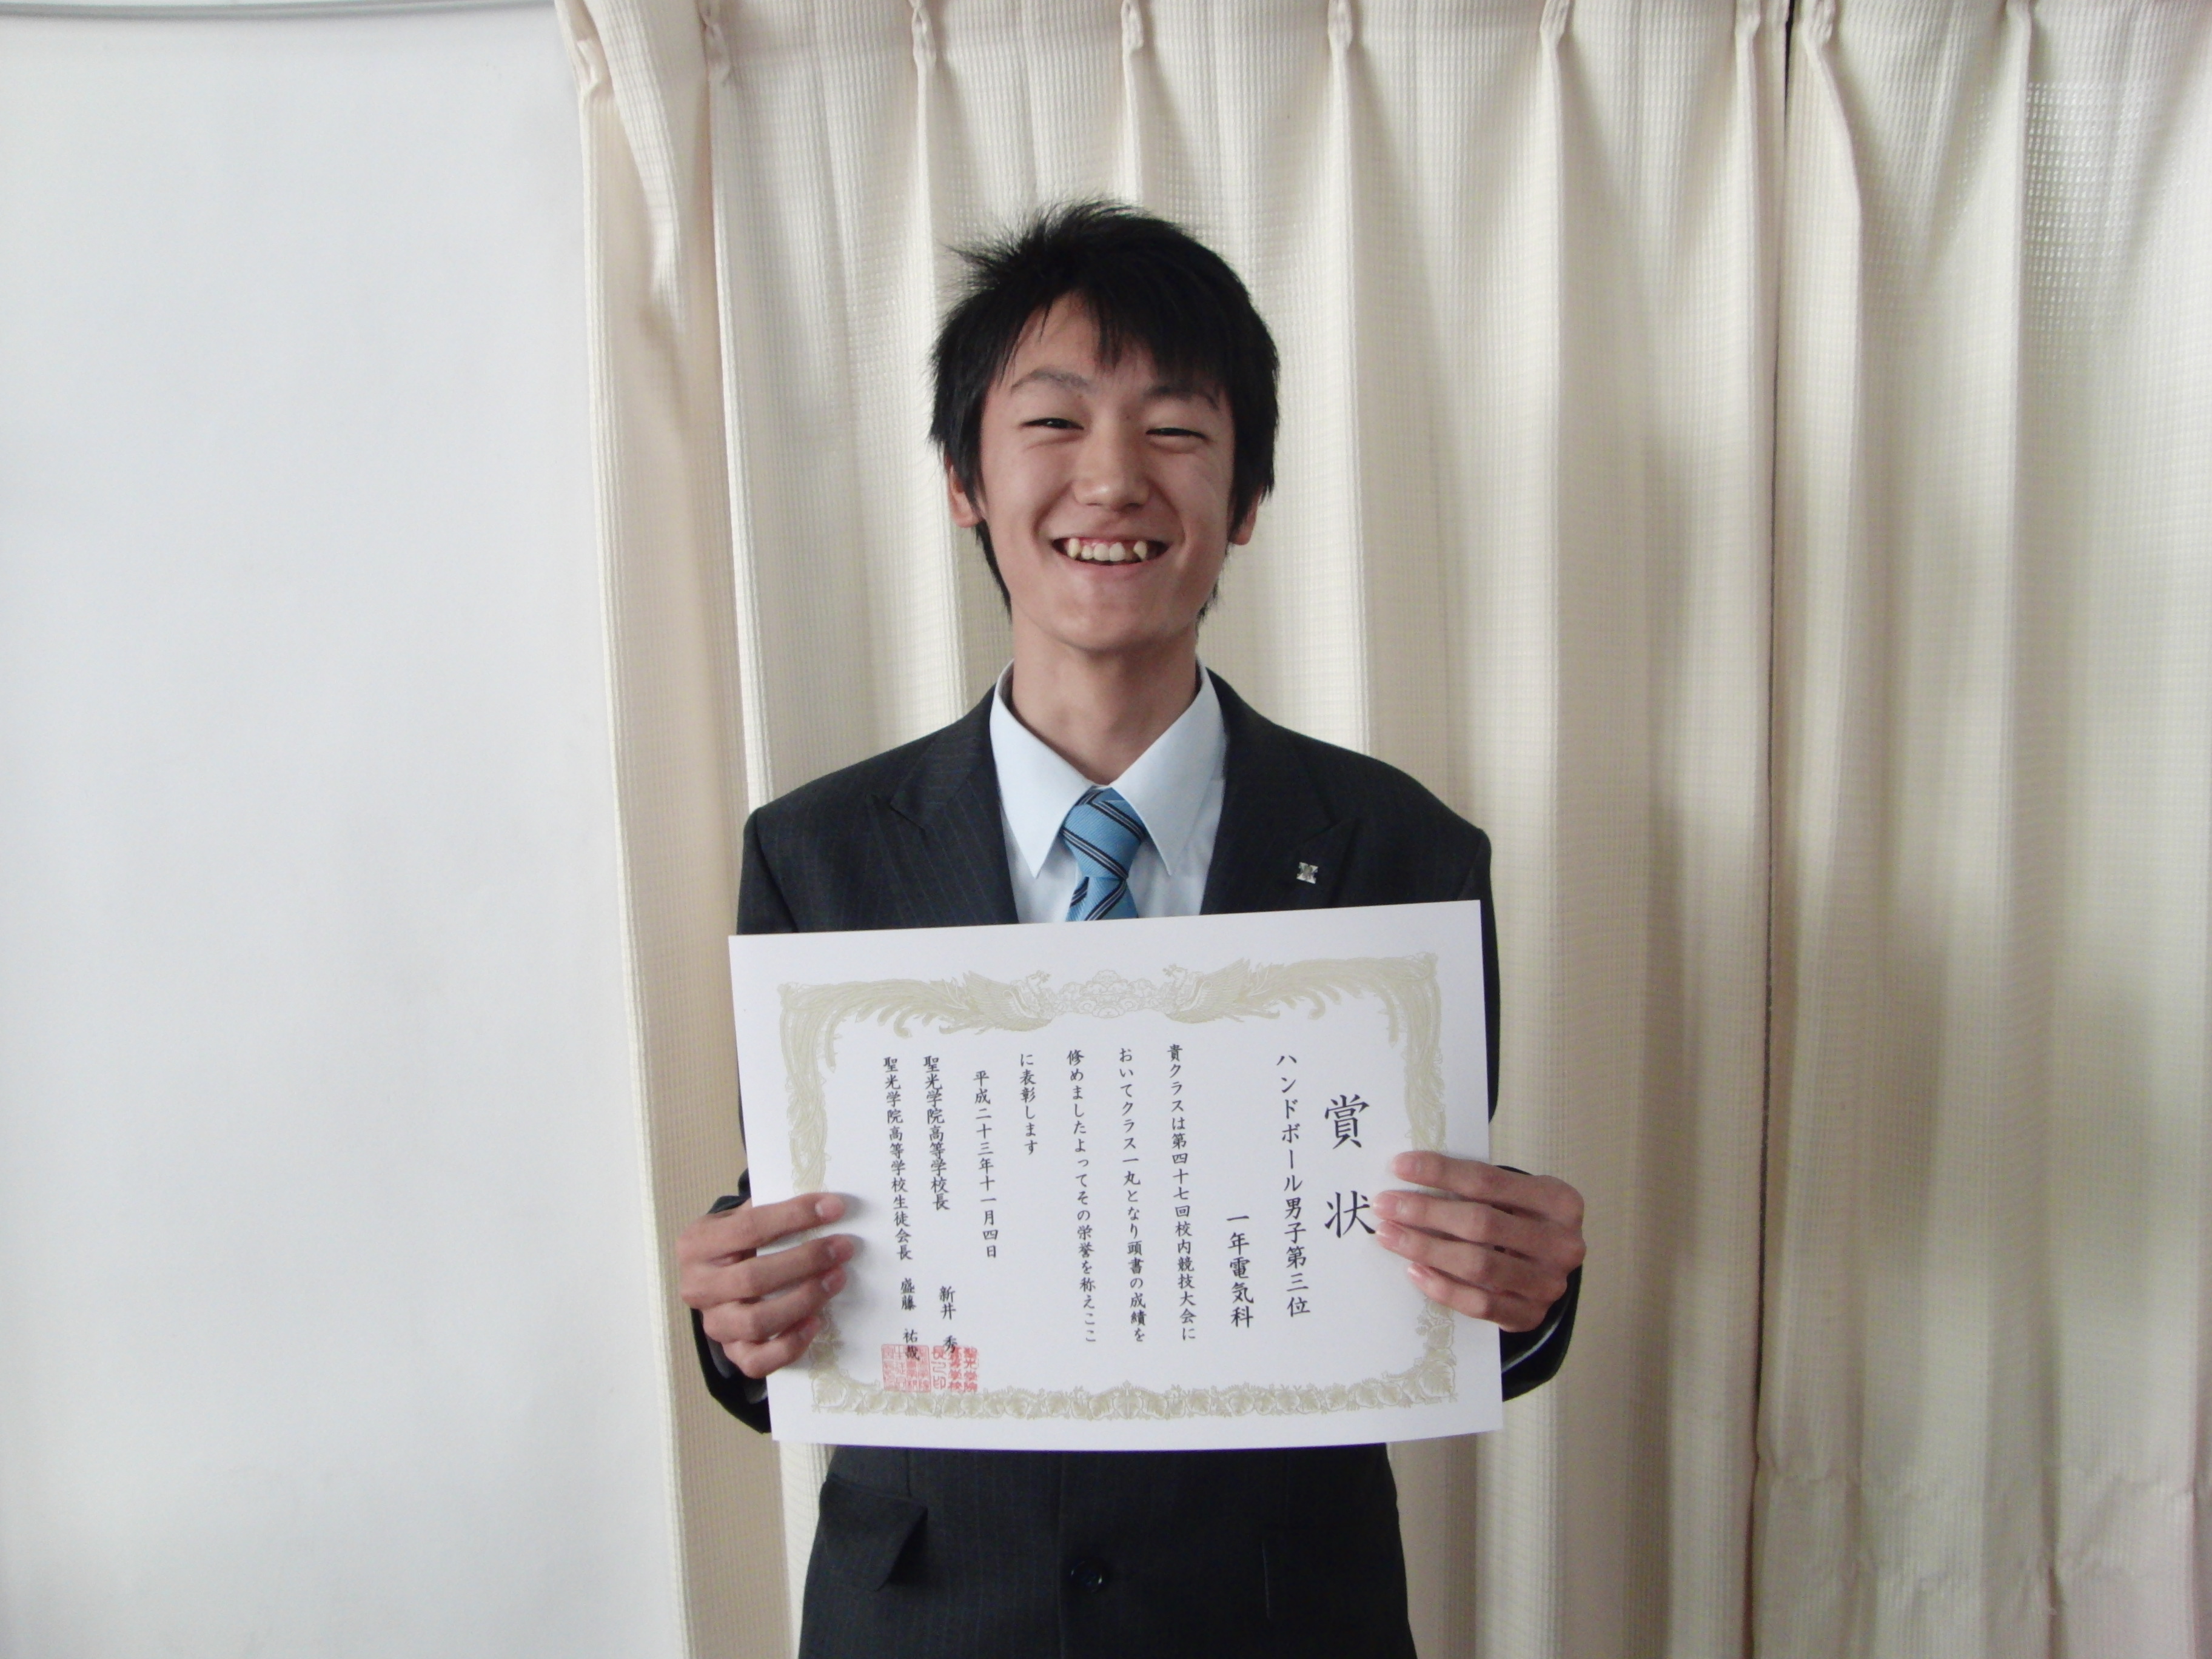 賞状
ハンドボール男子第三位
一年電気科
貴クラスは第四十七回校内競技大会に
おいてクラス一丸となり頭書の成績を
修めましたよってその栄誉を称えここ
に表彰します
平成二十三年十一月四日
聖光学院高等学校長　新井　秀
聖光学院高等学校生徒会長　盛藤　祐哉